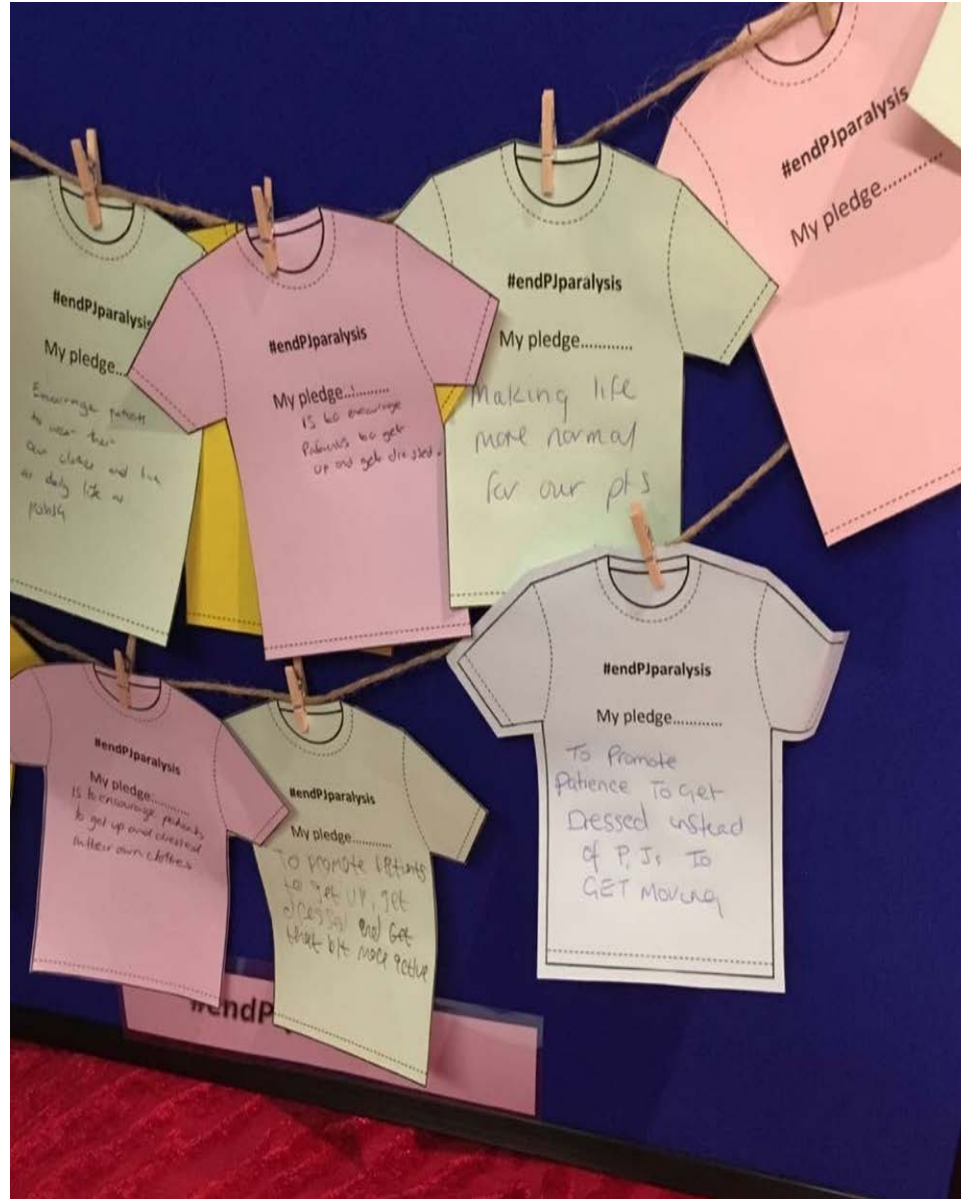 #endPJparalysis
My pledge...
Encourage patients
to wear their
own clothes and live
as daily life as
#endPJparalysis
My pledge............
is to encourage
Patients to get
up and get dressed.
#endPJparalysis
My pledge............
Making life
more normal
for our pts
#endPJparalysis
My pledge............
#endPJparalysis
My pledge............
is to encourage patients
to get up and dressed
in their own clothes
#endPJparalysis
My pledge............
To promote patients
to get up, get
dressed and Get
that bit more active
#endPJparalysis
My pledge............
To Promote
Patience To Get
Dressed instead
of P.Js To
GET Moving
#endP